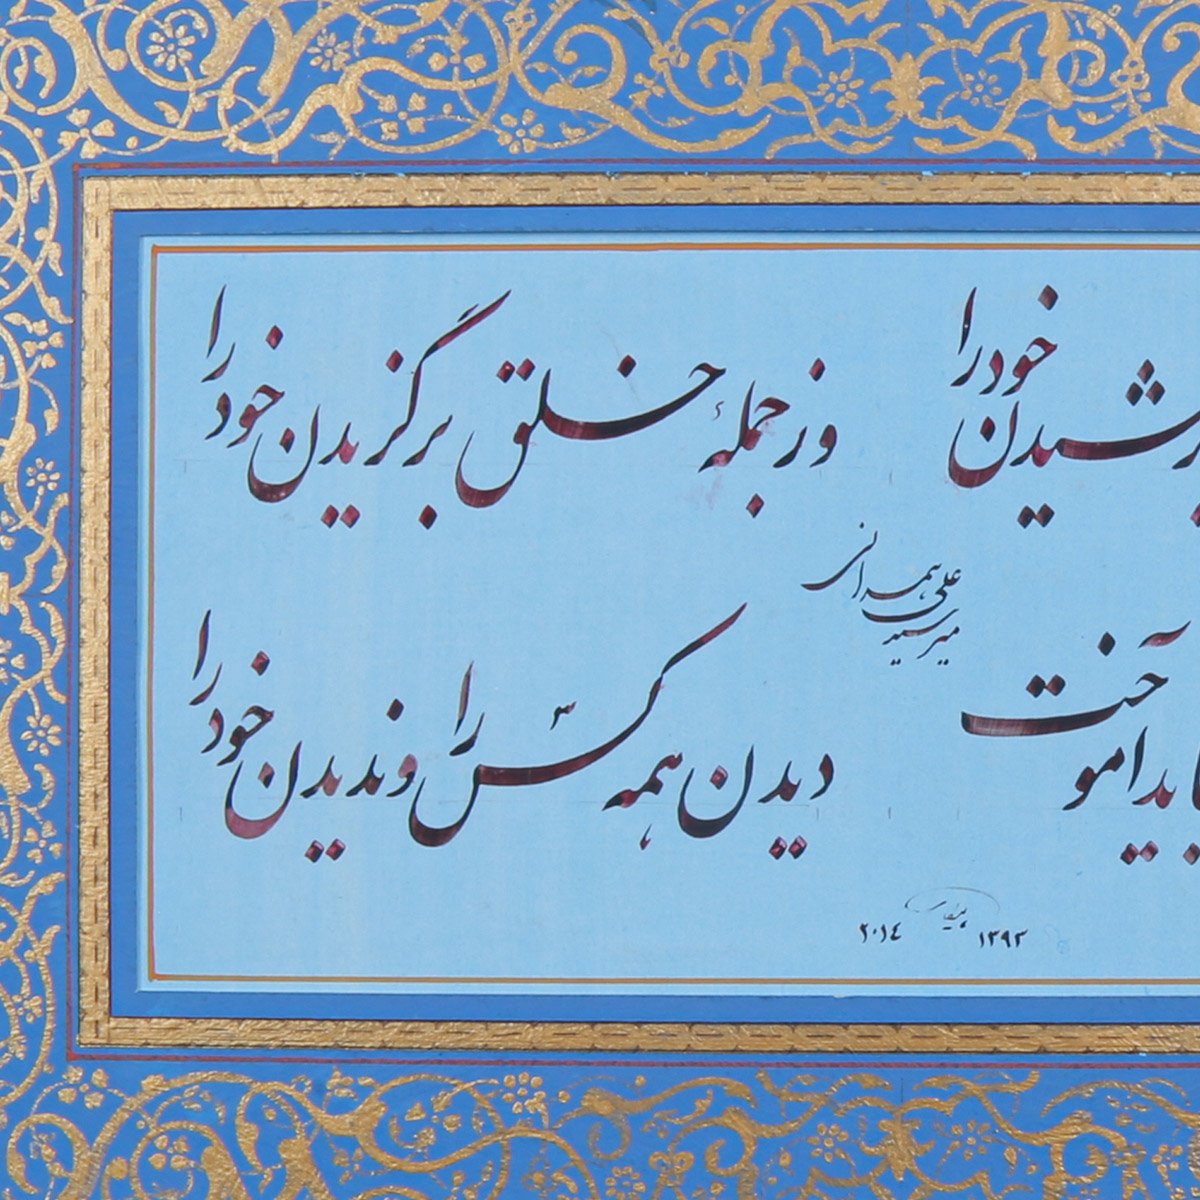 خود را
وز جملهٔ خلق برگزیدن خود را
میر سید علی همدانی
آموخت
دیدن همه کس را و ندیدن خود را
۱۳۹۳ ۲۰۱٤